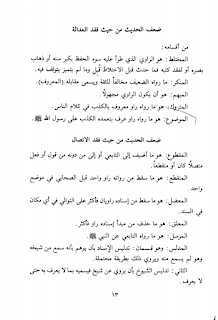 ضعف الحديث من حيث فقد العدالة
من أقسامه :
المختلط: هو الراوي الذي طرأ عليه سوء الحفظ بكبر سنه أو ذهاب
بصره أو لفقد كتبه فما حدث قبل الاختلاط قُبل وما لم يتميز يتوقف فيه .
المنكر : ما رواه الضعيف مخالفاً للثقة ويسمى مقابله (المعروف).
المبهم: هو أن يكون الراوي مجهولاً.
المتروك: هو ما رواه راو معروف بالكذب في كلام الناس.
الموضوع: هو ما رواه راو عرف بتعمده الكذب على رسول الله ﷺ.
ضعف الحديث من حيث فقد الاتصال
المقطوع: هو ما أضيف إلى التابعي أو إلى من دونه من قول أو فعل
متصلًا كان أو منقطعاً.
المنقطع: هو ما سقط من رواته راو واحد قبل الصحابي في موضع
واحد.
المعضل: هو ما سقط من إسناده راويان فأكثر على التوالي في أي مكان
في السند.
المعلق: هو ما حذف من مبدأ إسناده راو فأكثر.
المرسل: هو ما رواه التابعي عن النبي ﷺ.
المدلس: وهو قسمان: تدليس الإسناد بأن يوهم بأنه سمع من شيخه
وهو لم يسمع منه ويروي ذلك بطريقة محتملة.
الثاني : تدليس الشيوخ بأن يروي عن شيخ فيسميه بما لا يعرف به حتى
لا يعرف.
١٣